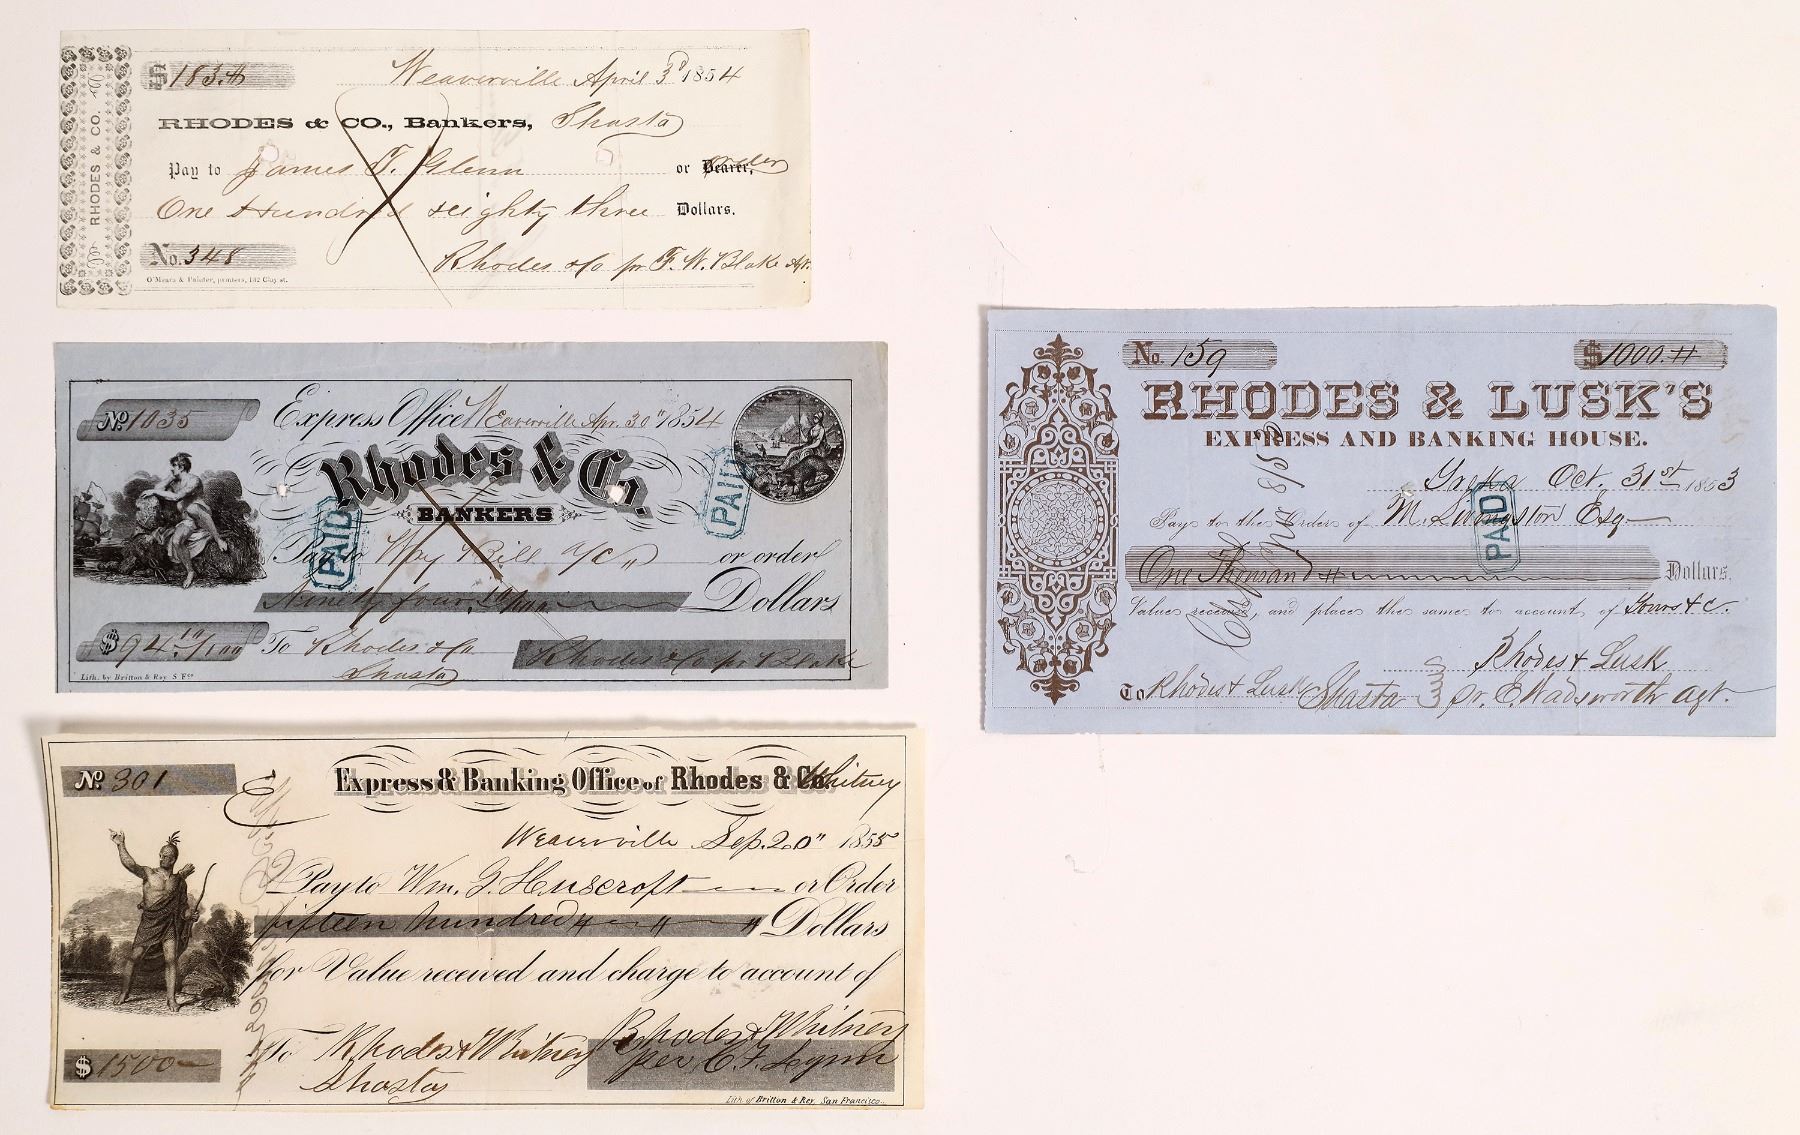 RHODES & CO.
$ 183.
Weaverville April 3d 1854
RHODES & CO., Bankers, Shasta
Pay to James T. Glenn or Bearer, Order
One Hundred & eighty three Dollars.
No. 348
Rhodes & Co pr F. W. Blake Agt.
O'Meara & Painter, printers, 132 Clay st.
No. 1035
Express Office Weaverville Apr. 30" 1854
Rhodes & Co.
BANKERS
PAID
PAID
Pay to Way Bill a/c or order
Ninety four 10/100 Dollars
$ 94 10/100
To Rhodes & Co
Shasta
Rhodes & Co pr Blake
Lith. by Britton & Rey S. Fco
No. 301
Express & Banking Office of Rhodes & Co. Whitney
Weaverville Sep. 20" 1855
Pay to Wm. J. Huscroft or Order
fifteen hundred Dollars
for Value received and charge to account of
$ 1500
To Rhodes & Whitney
Shasta
Rhodes & Whitney
per C. F. Lynn
Lith. of Britton & Rey. San Francisco.
No. 159
$ 1000.
RHODES & LUSK'S
EXPRESS AND BANKING HOUSE.
Yreka Oct. 31st 1853
Pay to the Order of M. Livingston Esq
PAID
One Thousand Dollars.
Value received, and place the same to account of Yours &c.
Rhodes & Lusk
To Rhodes & Lusk Shasta
Pr. E. Wadsworth Agt.